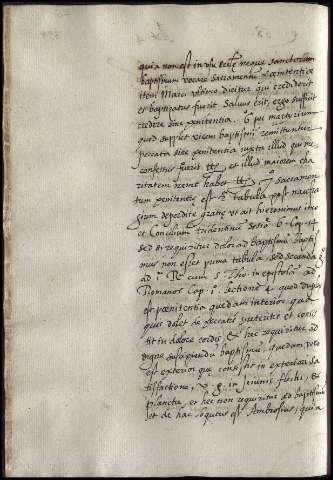 quia non est in usu ecclie neque sanctorum
baptismum vocare sacramentum poenitentiæ
item Marci ultimo dicitur qui crediderit
et baptizatus fuerit salvus erit, ergo sufficit
credere sine penitentia. 6 per martyrium
quod supplet vicem baptismi remittuntur
peccata sine penitentia iuxta illud qui me
confessus fuerit et illud maiorem cha
ritatem nemo habet sacramen
tum penitentię est 2ª tabula post naufra
gium deperditę gratię ut ait hieronimus
et Concilium tridentinum sessio 6 Cap. 14
sed si requiritur dolor ad baptismum bapti
mus non esset prima tabula sed secunda
ad Rᵉ cum S Tho in epistolam ad
Romanos Cap. lectione 4 quod duplex
est pœnitentia quedam interior, qua
quis dolet de peccatis preteritis et consis
tit in dolore cordis & hec requiritur ad
digne suscipiendum baptismum, quedam vero
est exterior que consistit in exteriori sa
tisfactione, v. g. in ieiunis fletu, &
planctu, et hec non requiritur ad baptismum
et de hac loqutus est Ambrosius, quia